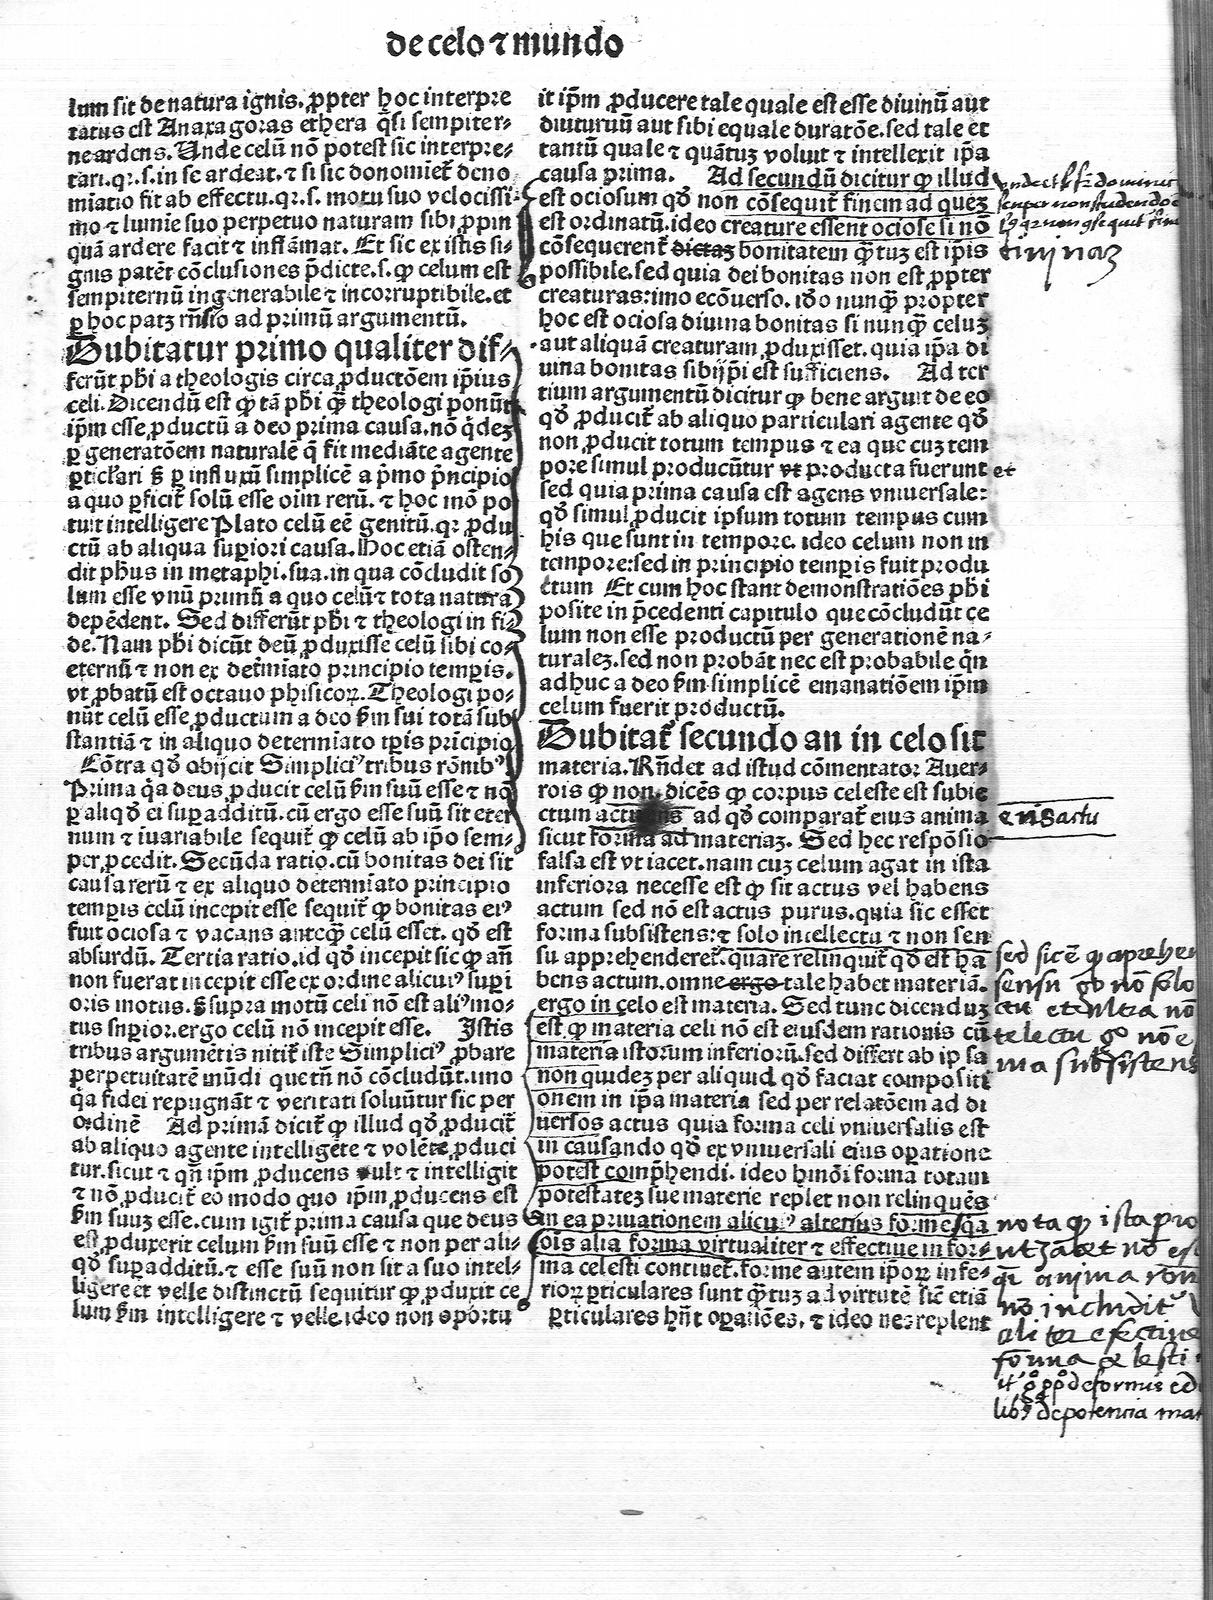 de celo ⁊ mundo
lum sit de natura ignis. ꝓpter hoc interpre
tatus est Anaxagoras ethera q̄si sempiter-
ne ardens. Unde celū nō potest sic interpre-
tari. qꝛ. s. in se ardeat. ⁊ si sic denomiet̄ deno
miatio fit ab effectu. qꝛ. s. motu suo velocissi-
mo ⁊ lumīe suo perpetuo naturam sibi ꝓpin
quā ardere facit ⁊ inflāmat. Et sic ex istis si-
gnis patēt cōclusiones p̄dicte. s. ꝙ celum est
sempiternū ingenerabile ⁊ incorruptibile. et
ꝑ hoc patꝫ rn̄sio ad primū argumentū.
Dubitatur primo qualiter dif-
ferūt phi a theologis circa ꝓductōem ip̄ius
celi. Dicendū est ꝙ tā phi q̄ꝫ theologi ponūt
ip̄m esse ꝓductū a deo prima causa. nō q̄deꝫ
ꝑ generatōem naturalē q̄ fit mediāte agente
ꝑticl̄ari sꝫ ꝑ influxū simplicē a p̄mo p̄ncipio
a quo ꝑficit̄ solū esse oīm rerū. ⁊ hoc mō po
tuit intelligere Plato celū eē genitū. qꝛ ꝓdu
ctū ab aliqua suꝑiori causa. Hoc etiā osten-
dit phus in metaphi. sua. in qua cōcludit so
lum esse vnū primū a quo celū ⁊ tota natura
depēdent. Sed differūt phi ⁊ theologi in fi-
de. Nam phi dicūt deū ꝓduxisse celū sibi co-
eternū ⁊ non ex det̄miato principio tempis.
vt ꝓbatū est octauo phisicoꝝ. Theologi po-
nūt celū esse ꝓductum a deo ẜm sui totā sub
stantiā ⁊ in aliquo determiato tꝑis prīcipio
Cōtra qd̄ obijcit Simplici⁹ tribus rōnib⁹
Prima q̄a deus ꝓducit celū ẜm suū esse ⁊ nō
ꝑ aliqd̄ ei suꝑadditū. cū ergo esse suū sit eter
num ⁊ īuariabile sequit̄ ꝙ celū ab ip̄o sem-
per ꝓcedit. Secūda ratio. cū bonitas dei sit
causa rerū ⁊ ex aliquo determiato principio
temꝑis celū incepit esse sequit̄ ꝙ bonitas ei⁹
fuit ociosa ⁊ vacans anteq̄ꝫ celū esset. qd̄ est
absurdū. Tertia ratio. id qd̄ incepit sic ꝙ an̄
non fuerat incepit esse ex ordine alicui⁹ suꝑi
oris motus. sꝫ supra motū celi nō est ali⁹ mo-
tus suꝑior. ergo celū nō incepit esse. Istis
tribus argumētis nitit̄ iste Simplici⁹ ꝓbare
perpetuitatē mūdi que tn̄ nō cōcludūt. imo
q̄a fidei repugnāt ⁊ veritati soluūtur sic per
ordinē Ad primā dicit̄ ꝙ illud qd̄ ꝓducit̄
ab aliquo agente intelligēte ⁊ volēte ꝓduci
tur. sicut ⁊ qn̄ ip̄m ꝓducens vult ⁊ intelligit
⁊ nō ꝓducit̄ eo modo quo ip̄m ꝓducens est
ẜm suuꝫ esse. cum igit̄ prima causa que deus
est ꝓduxerit celum ẜm suū esse ⁊ non per ali-
qd̄ suꝑadditū. ⁊ esse suū non sit a suo intel-
ligere et velle distinctū sequitur ꝙ ꝓduxit ce
lum ẜm intelligere ⁊ velle. ideo non oportu
it ip̄m ꝓducere tale quale est esse diuinū aut
diuturnū aut sibi equale duratōe. sed tale et
tantū quale ⁊ quātuꝫ voluit ⁊ intellexit ip̄a
causa prima. Ad secundū dicitur ꝙ illud
est ociosum qd̄ non cōsequit̄ finem ad queꝫ
est ordinatū. ideo creature essent ociose si nō
cōsequerent̄ dictaꝫ bonitatem q̄ꝫtuꝫ est ip̄is
possibile. sed quia dei bonitas non est ꝓpter
creaturas: imo ecōuerso. ido nunq̄ꝫ propter
hoc est ociosa diuina bonitas si nunq̄ꝫ celuꝫ
aut aliquā creaturam ꝓduxisset. quia ip̄a di
uina bonitas sibijp̄i est sufficiens. Ad ter
tium argumentū dicitur ꝙ bene arguit de eo
qd̄ ꝓducit̄ ab aliquo particulari agente qd̄
non ꝓducit totum tempus ⁊ ea que cuꝫ tem
pore simul producūtur vt producta fuerunt et
sed quia prima causa est agens vniuersale:
qd̄ simul ꝓducit ipsum totum tempus cum
his que sunt in tempore. ideo celum non in
tempore: sed in principio temꝑis fuit produ
ctum Et cum hoc stant demonstratiōes phi
posite in p̄cedenti capitulo que cōcludūt ce
lum non esse productū per generationē na-
turaleꝫ. sed non probāt nec est probabile q̄n
adhuc a deo ẜm simplicē emanatiōem ip̄m
celum fuerit productū.
Dubitat̄ secundo an in celo sit
materia. Rn̄det ad istud cōmentator Auer-
rois ꝙ non. dicēs ꝙ corpus celeste est subie
ctum ad qd̄ comparat̄ eius anima
ens actu
sicut forma ad materiaꝫ. Sed hec respōsio
falsa est vt iacet. nam cuꝫ celum agat in ista
inferiora necesse est ꝙ sit actus vel habens
actum sed nō est actus purus. quia sic esset
forma subsistens: ⁊ solo intellectu ⁊ non sen
su apprehenderet̄. quare relinquit̄ qd̄ est hā
bens actum. omne ergo tale habet materiā.
ergo in celo est materia. Sed tunc dicenduꝫ
est. ꝙ materia celi nō est eiusdem rationis cū
materia istorum inferiorū. sed differt ab ip̄sa
non quideꝫ per aliquid qd̄ faciat compositi
onem in ip̄a materia sed per relatōem ad di
uersos actus quia forma celi vniuersalis est
in causando qd̄ ex vniuersali eius oꝑatione
potest comp̄hendi. ideo hmōi forma totam
potestateꝫ sue materie replet non relinquēs
in ea priuationem alicui⁹ alterius forme. q̄a
oīs alia forma virtualiter ⁊ effectiue in for-
ma celesti continet̄. forme autem ip̄oꝝ infe-
rioꝝ ꝑticulares sunt q̄ꝫtuꝫ ad virtutē sic̄ etiā
ꝑticulares hn̄t oꝑatiōes. ⁊ ideo nec replent
sed sic ē ꝙ aprehen
sensu go nō solo
ctu et vltra nō
telectu go nō e
ma subsistens
nota ꝙ ista pro
anima
nō includit
aliter efectiue
forma celesti
de formis
lib⁹ de potencia mat